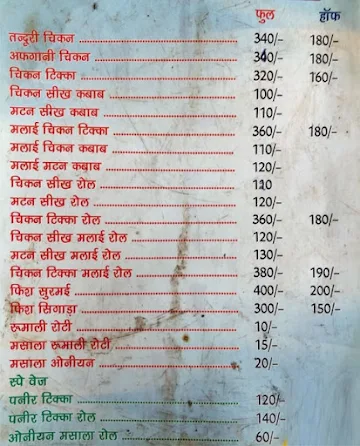 फुल हॉफ
तन्दुरी चिकन 340/- 180/-
अफगानी चिकन 340/- 180/-
चिकन टिक्का 320/- 160/-
चिकन सीख कबाब 100/-
मटन सीख कबाब 110/-
मलाई चिकन टिक्का 360/- 180/-
मलाई चिकन कबाब 110/-
मलाई मटन कबाब 120/-
चिकन सीख रोल 110
मटन सीख रोल 120/-
चिकन टिक्का रोल 360/- 180/-
चिकन सीख मलाई रोल 120/-
मटन सीख मलाई रोल 130/-
चिकन टिक्का मलाई रोल 380/- 190/-
फिश सुरमई 400/- 200/-
फिश सिंगाड़ा 300/- 150/-
रूमाली रोटी 10/-
मसाला रूमाली रोटी 15/-
मसाला ओनीयन 20/-
स्पे वेज
पनीर टिक्का 120/-
पनीर टिक्का रोल 140/-
ओनीयन मसाला रोल 60/-